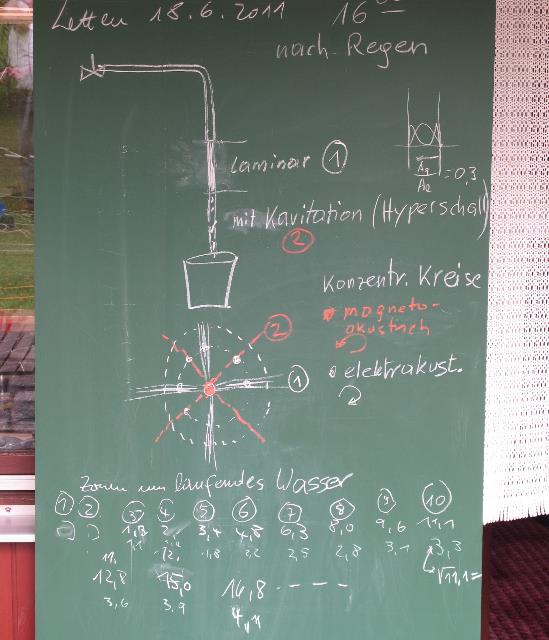 Letten 18.6.2011 16 00
nach Regen
laminar ①
A1
A2 = 0,3
mit Kavitation (Hyperschall)
②
Konzentr. Kreise
magneto-
akustisch
elektroakust.
②
①
Zonen um laufendes Wasser
① ② ③ ④ ⑤ ⑥ ⑦ ⑧ ⑨ ⑩
1,3 2 3,4 4,8 6,3 8,0 9,6 11,1
1,8 2,2 2,5 2,8 3,1 3,3
√11,1 =
12,8 15,0 16,8 - - - -
3,6 3,9 4,1